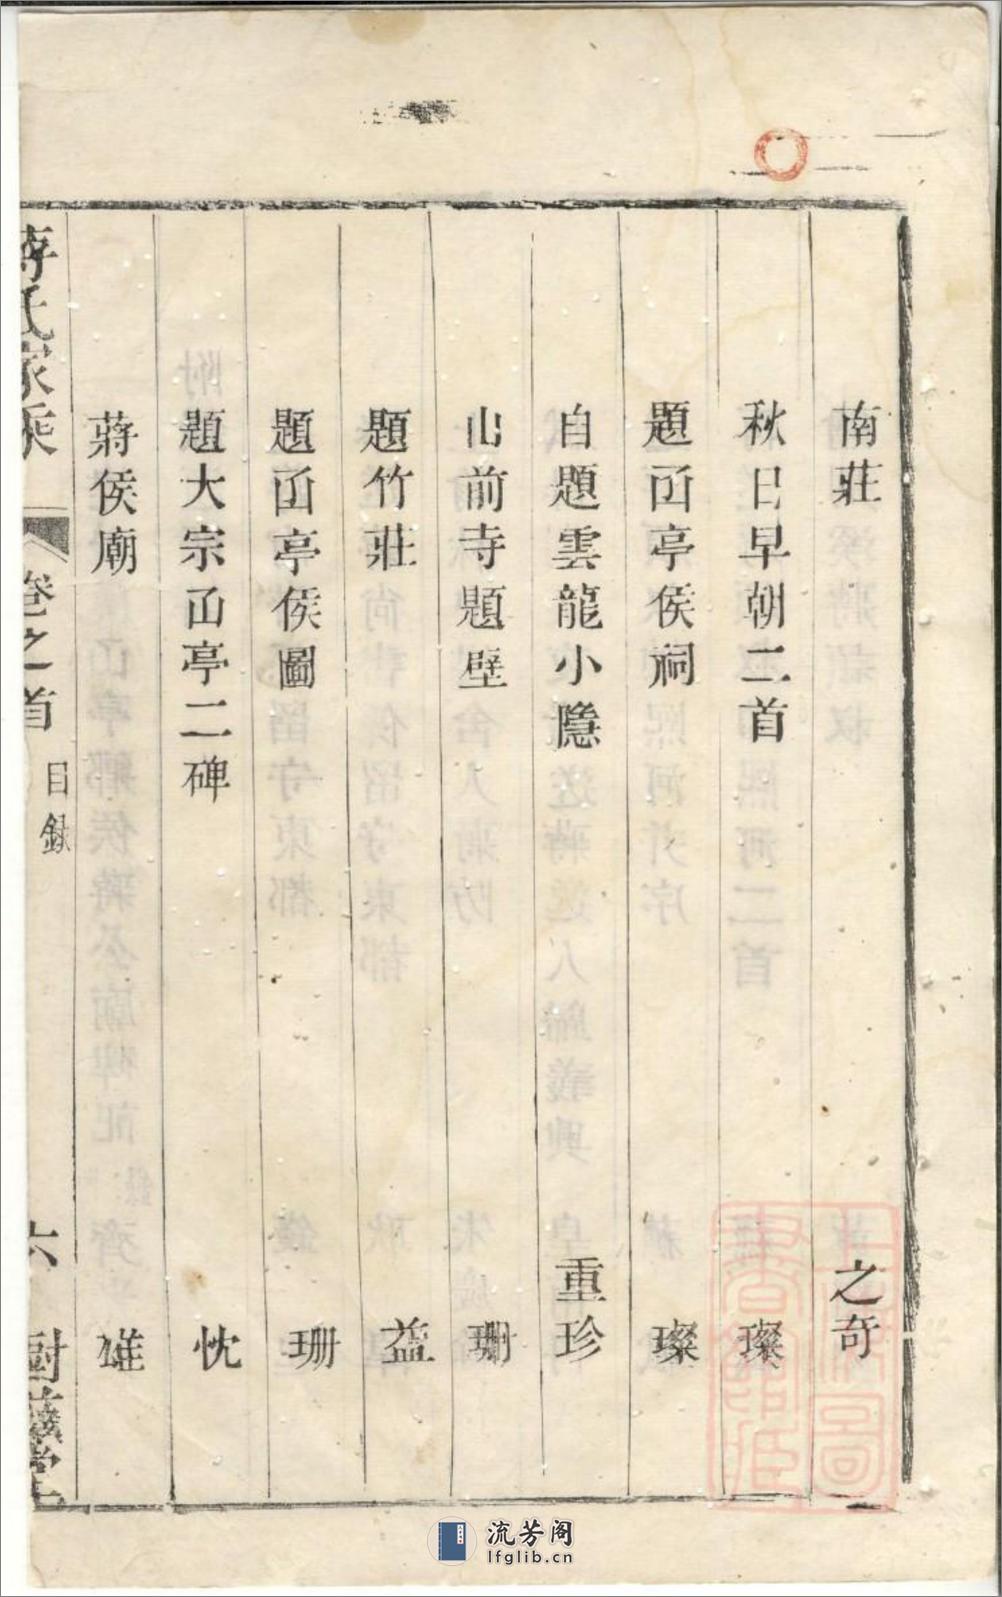 南莊 之奇
秋日早朝二首 璨
題凾亭侯祠 璨
自題雲龍小隱 重珍
山前寺題壁 珊
題竹莊 益
題凾亭侯圖 珊
題大宗凾亭二碑 忱
蔣侯廟 雄
蔣氏家乘 卷之首 目錄 六
流芳阁
lfglib.cn